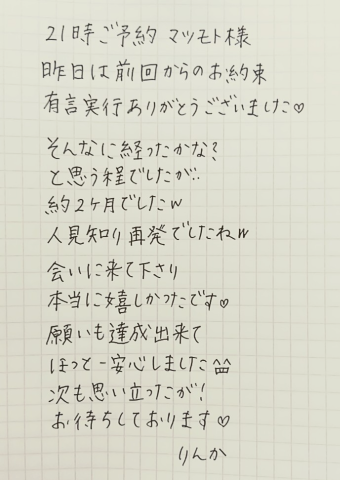 21時ご予約 マツモト様
昨日は前回からのお約束
有言実行ありがとうございました♡
そんなに経ったかな?
と思う程でしたが‥
約2ヶ月でしたw
人見知り再発でしたねw
会いに来て下さり
本当に嬉しかったです♡
願いも達成出来て
ほっと一安心しました^^
次も思い立ったが!
お待ちしております♡
りんか